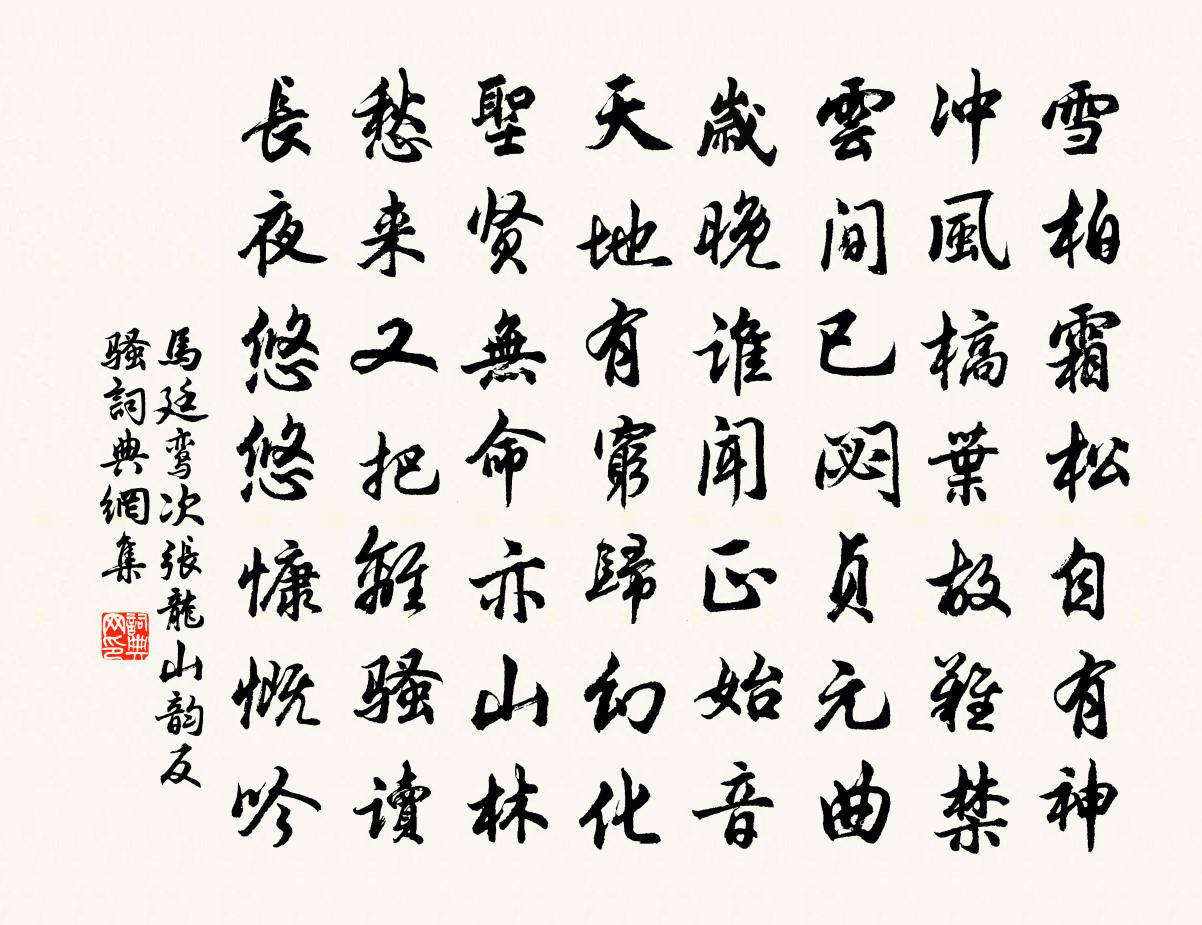 雪柏霜松自有神
冲風槁葉故難禁
雲間已閟貞元曲
歲晚誰聞正始音
天地有窮歸幻化
聖賢無命亦山林
愁来又把離騷讀
長夜悠悠慷慨吟
馬廷鸾次張龍山韵反
騷詞典網集
詞典网印